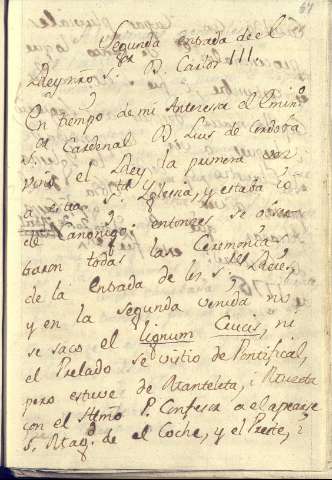 67
Segunda entrada de el
Rey nro S.ᵒʳ D. Carlos III
En tiempo de mi Antecesor el Emin
S. Cardenal D. Luis de Cordoba
vino el Rey la primera vez
a esta S.ᵗᵃ Iglesia, y estaba io
de Canonigo: entonces se obser
baron todas las Ceremonias
de la Entrada de los S.ʳᵉˢ Reies,
y en la segunda venida no
se saco el Lignum Crucis, ni
el Prelado se vistio de Pontifical,
pero estuve de Manteleta, i Muzeta
con el Ilmo P. Confesor a el apearse
S. Mag.ᵈ de el Coche, y el Preste, i